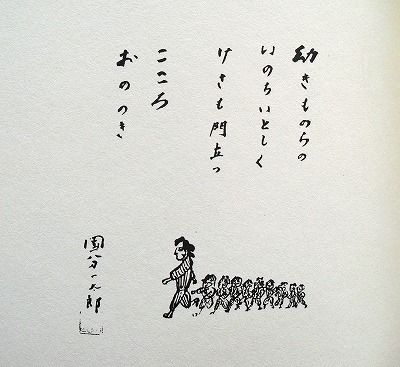 幼きものらの
いのちいとしく
けさも門立つ
こころ
おののき
国分一太郎